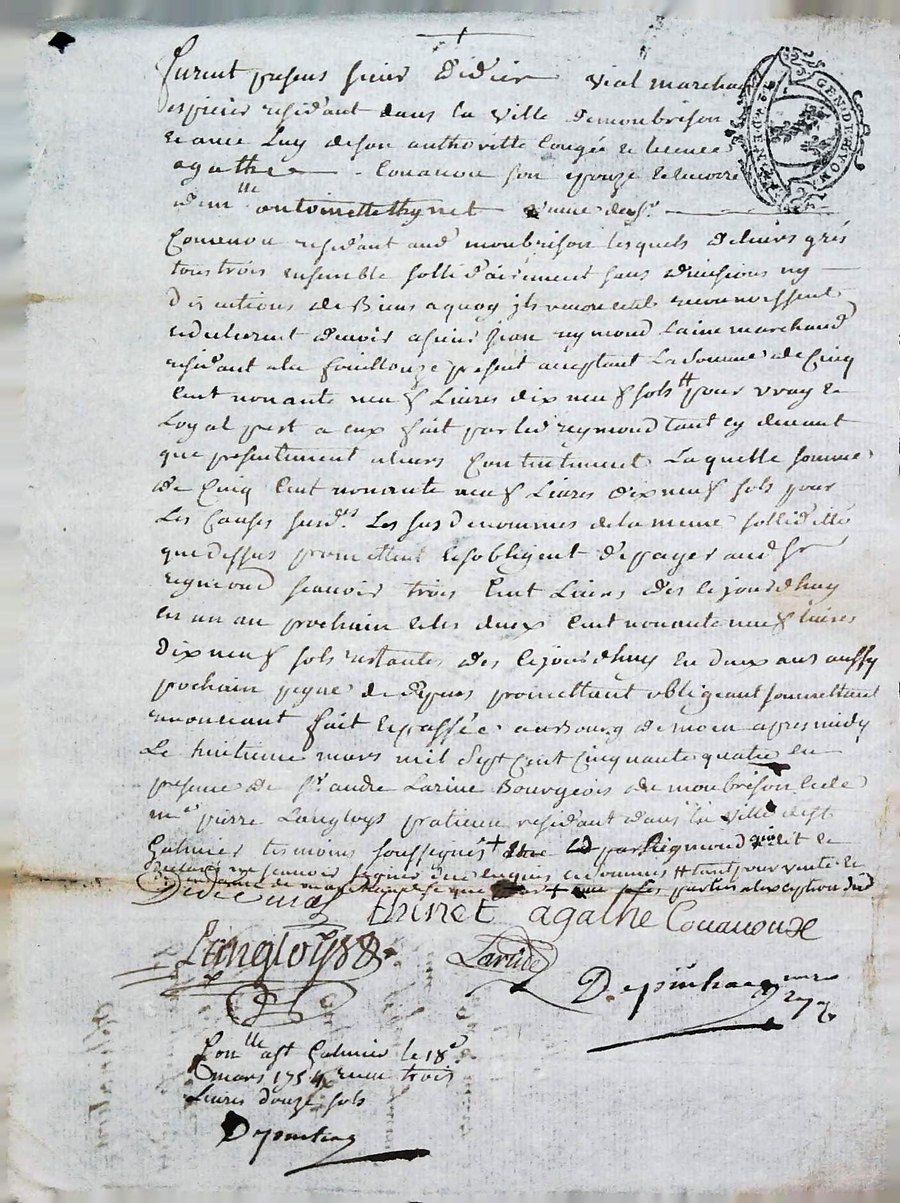 furent presens sieur Didier vial marchand
espicier residant dans la ville de monbrison
et avec luy de son authoritté Congée et licence
agathe Couavou son epouze et encore
dm.lle antoinette thynet veuve de s.r
Couavou residant aud monbrison lesquels de leurs grés
tous trois ensemble sollidairement sans divisions ny
discutions de Biens a quoy ils renoncent reconnoissent
et declarent devoir a sieur jean reymond laine marchand
residant a la fouillouze present acceptant La Somme de Cinq
Cent nonante neuf Livres dix neuf sols tt pour vray et
Loyal pret a eux fait par led reymond tant cy devant
que presentement a leurs Contentement Laquelle somme
de Cinq Cent nonante neuf Livres dix neuf sols pour
Les Causes susd.es Les sus denommes de la meme sollidité
que dessus promettent et s'obligent de payer aud s.r
reymond scavoir trois Cent Livres des ce jourdhuy
en un an prochain et les deux Cent nonante neuf livres
dix neuf sols restantes des ce jourdhuy en deux ans aussy
prochain peyne de depens promettant obligeant soumettant
renoncant fait et passée au Bourg de moin apres midy
Le huitieme mars mil Sept Cent Cinquante quatre en
presence de s.r andre Larine Bourgeois de monbrison et de
m.e pierre Langloys praticien residant dans la ville de st
Galmier temoins soussignés + par Reymond qui a dit et
ne scavoir signer de ce enquis et sommes tt tant pour vente et
de marchandise que + les parties a lexception dud
Didier vial thinet agathe Couavoux
Langloys Larine
Depuihac n.re
r.al
Con.lle a st Galmier le 18.e
mars 1754 receu trois
Livres douze sols
GEN. DE RYOM